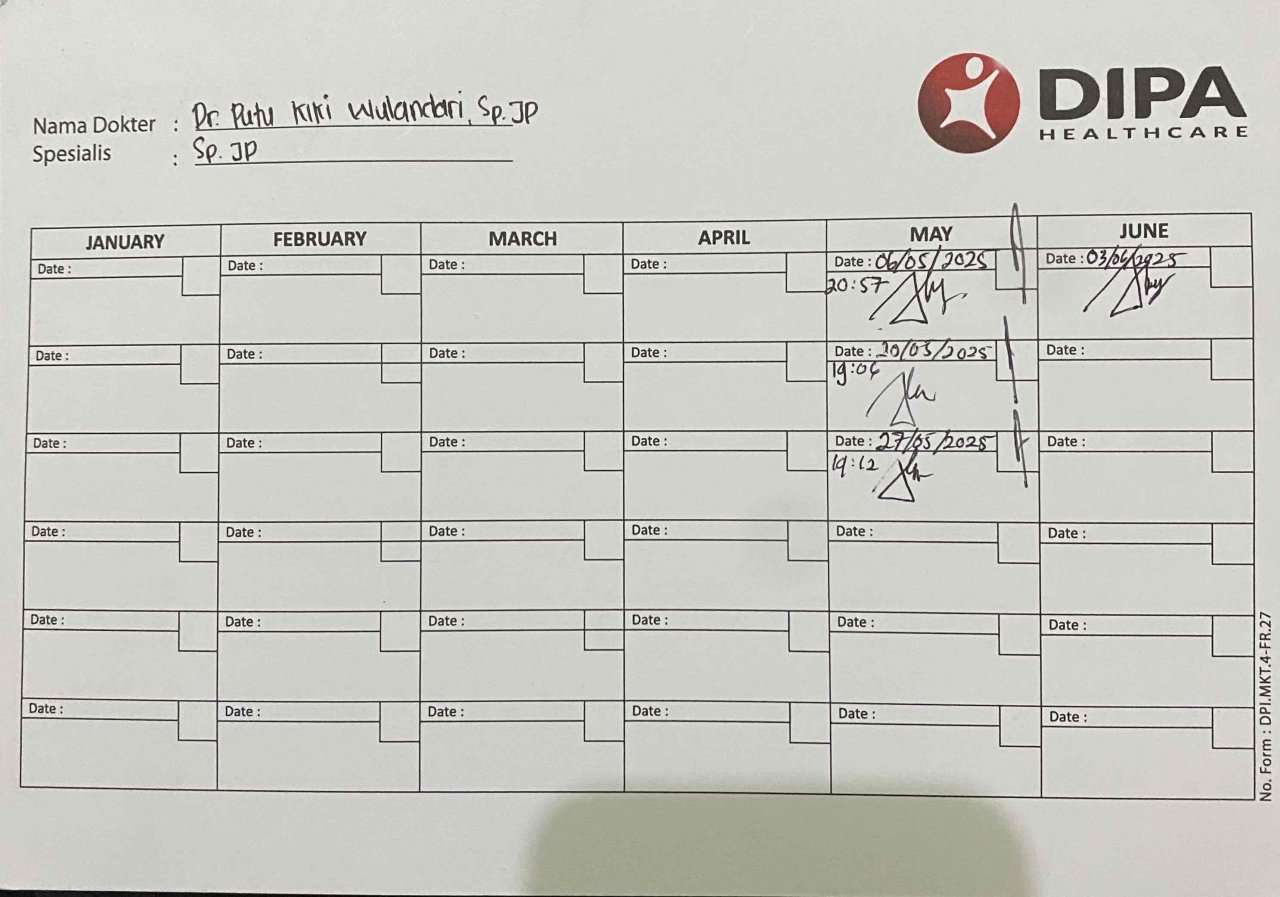 DIPA
HEALTHCARE
Nama Dokter : Dr. Putu Kiki Wulandari, Sp.JP
Spesialis : Sp. JP
JANUARY FEBRUARY MARCH APRIL MAY JUNE
Date : Date : Date : Date : Date : 06/05/2025 Date : 03/06/2025
20:57
Date : Date : Date : Date : Date : 20/05/2025 Date :
19:04
Date : Date : Date : Date : Date : 27/05/2025 Date :
19:12
Date : Date : Date : Date : Date : Date :
Date : Date : Date : Date : Date : Date :
Date : Date : Date : Date : Date : Date :
No. Form : DPI.MKT.4-FR.27